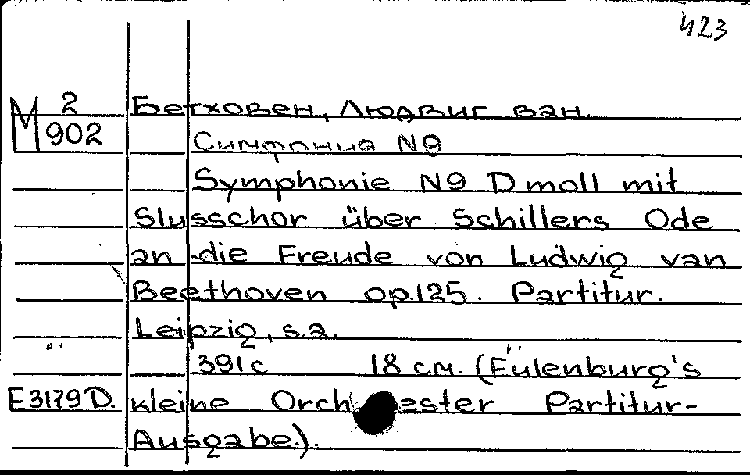 423
М 2 Бетховен, Людвиг ван.
902 Симфония N9
Symphonie N9 D moll mit
Slusschor über Schillers Ode
an die Freude von Ludwig van
Beethoven op.125. Partitur.
Leipzig, s.a.
391 с 18 см. (Eulenburg's
E3179D. kleine Orchester Partitur-
Ausgabe).